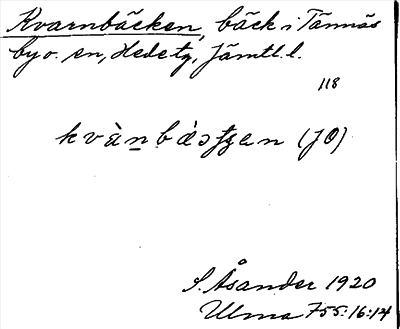 Kvarnbäcken, bäck i Tännäs
by o. sn, Hede tg, Jämtl. l.
118
(JO)
S. Åsander 1920
Ulma 755:16:14